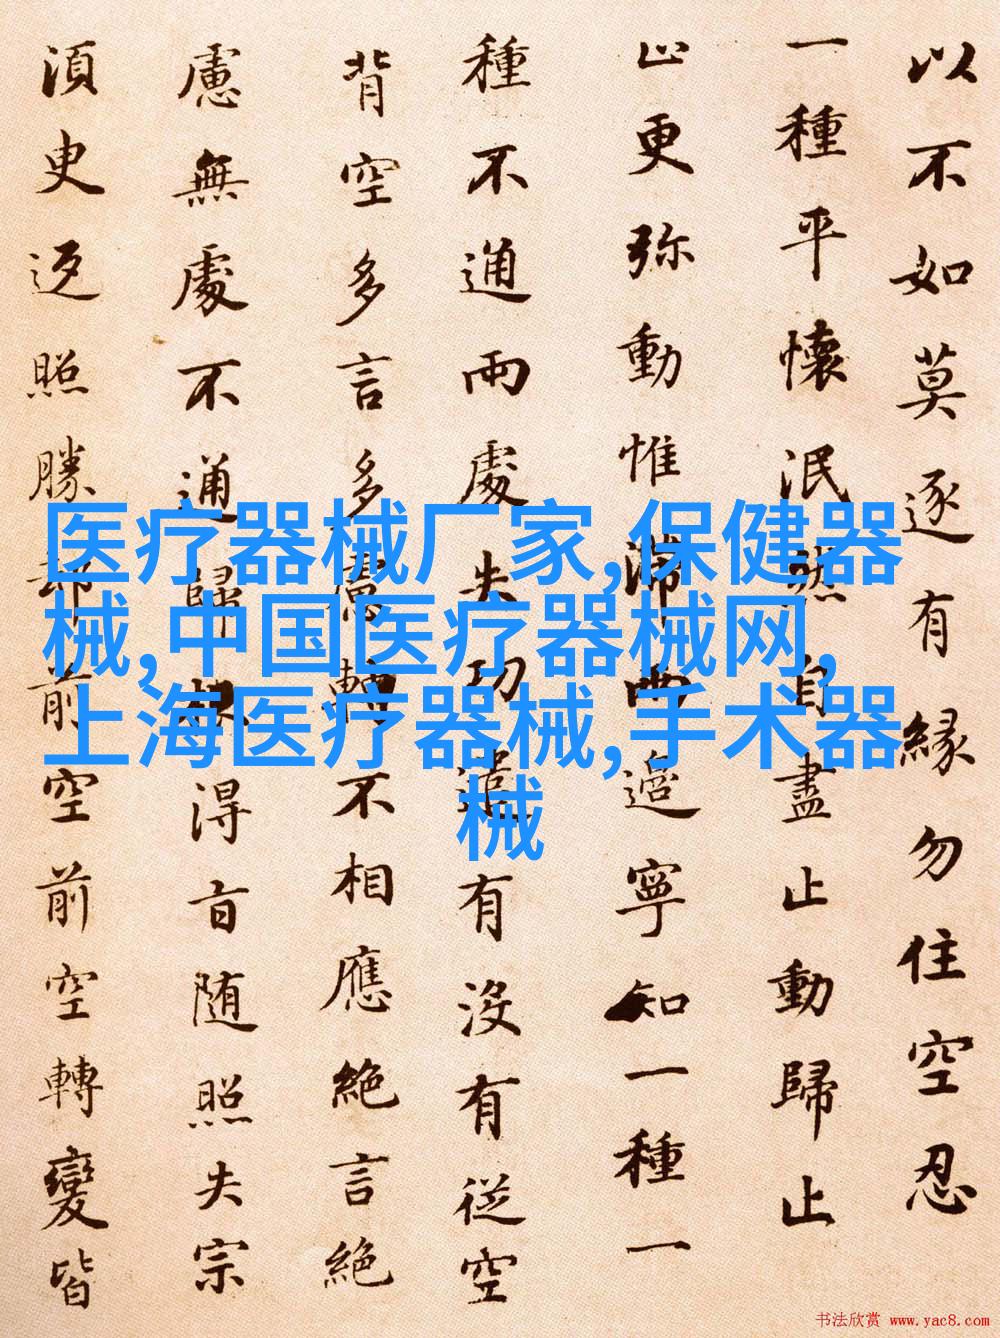 以不如莫逐有緣勿住空忍
一種平懷泯然自盡止動歸止
止更弥動惟滯兩邊寧知一種一
種不通兩處失功遣有沒有従空
背空多言多慮轉不相應絶言絶
慮無處不通歸根得旨随照失宗
須臾返照勝却前空前空轉變皆
医疗器械厂家,保健器
械,中国医疗器械网,
上海医疗器械,手术器
械
书法欣赏 www.yac8.com